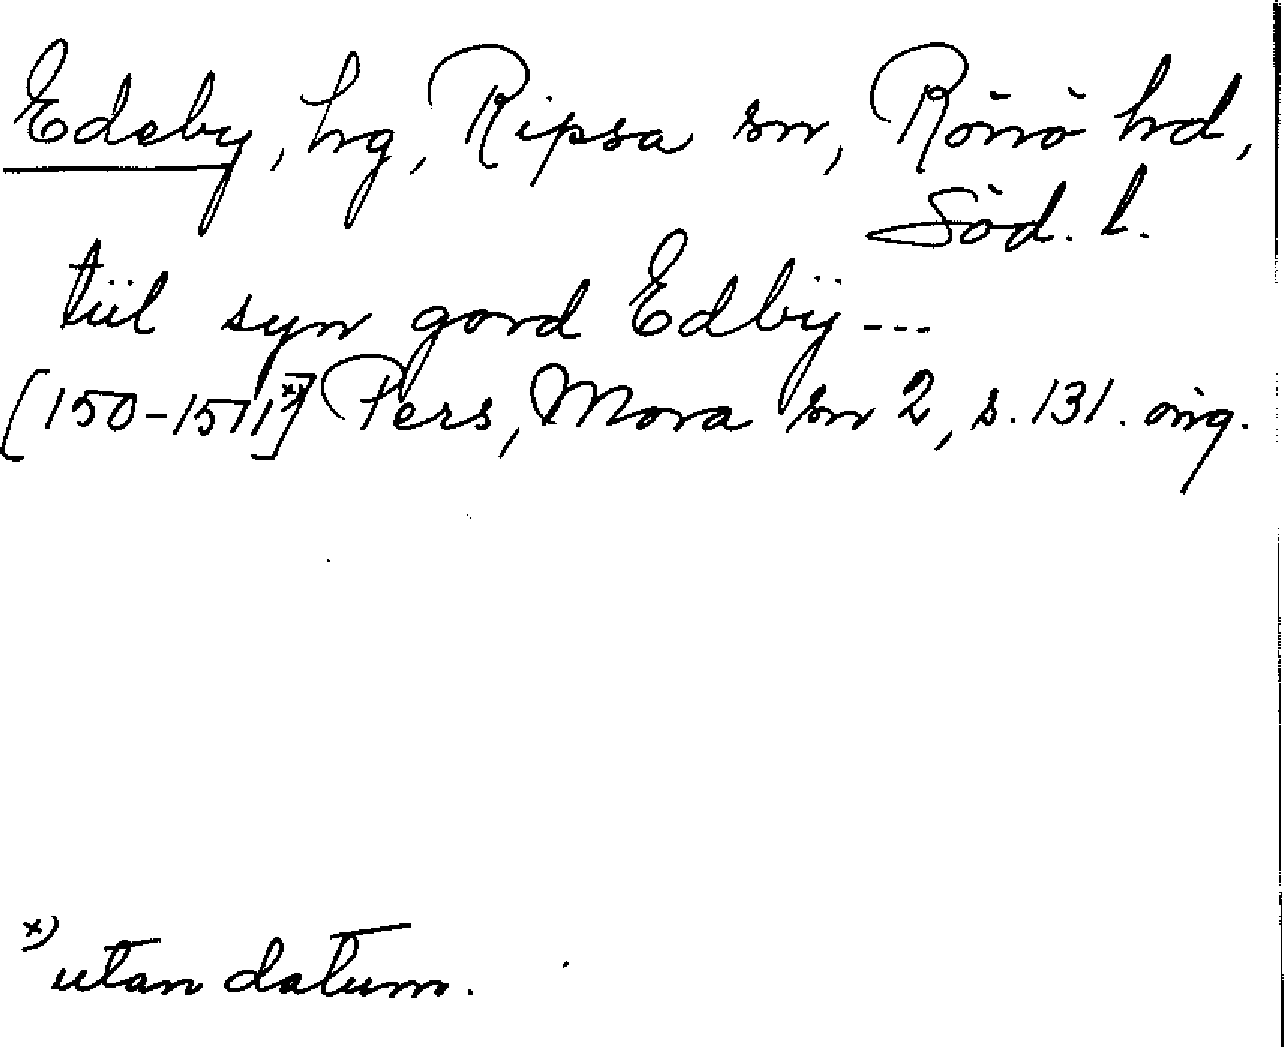 Edeby, hg, Ripsa sn, Rönö hd,
Söd. l.
tiil syn gord Edbÿ---
[150-1511]x) Pers, Mora sn 2, s. 131. orig.
x) utan datum.